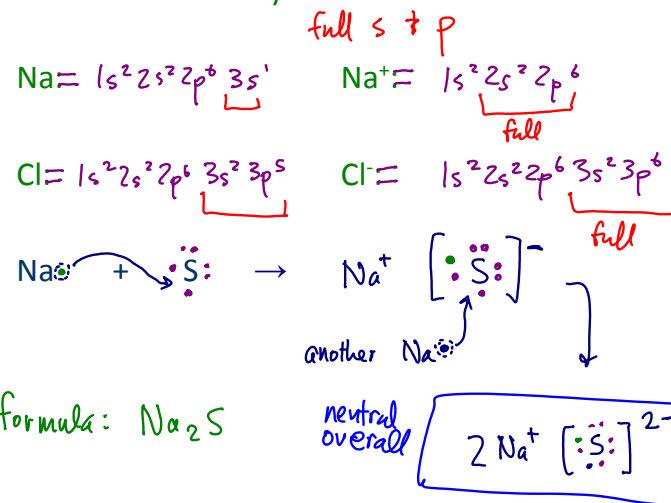 full s & p
Na= 1s² 2s² 2p⁶ 3s¹ Na⁺= 1s² 2s² 2p⁶
full
Cl= 1s² 2s² 2p⁶ 3s² 3p⁵ Cl⁻= 1s² 2s² 2p⁶ 3s² 3p⁶
full
Na + S → Na⁺ [S]⁻
another Na
formula: Na₂S
neutral
overall
2 Na⁺ [S]²⁻